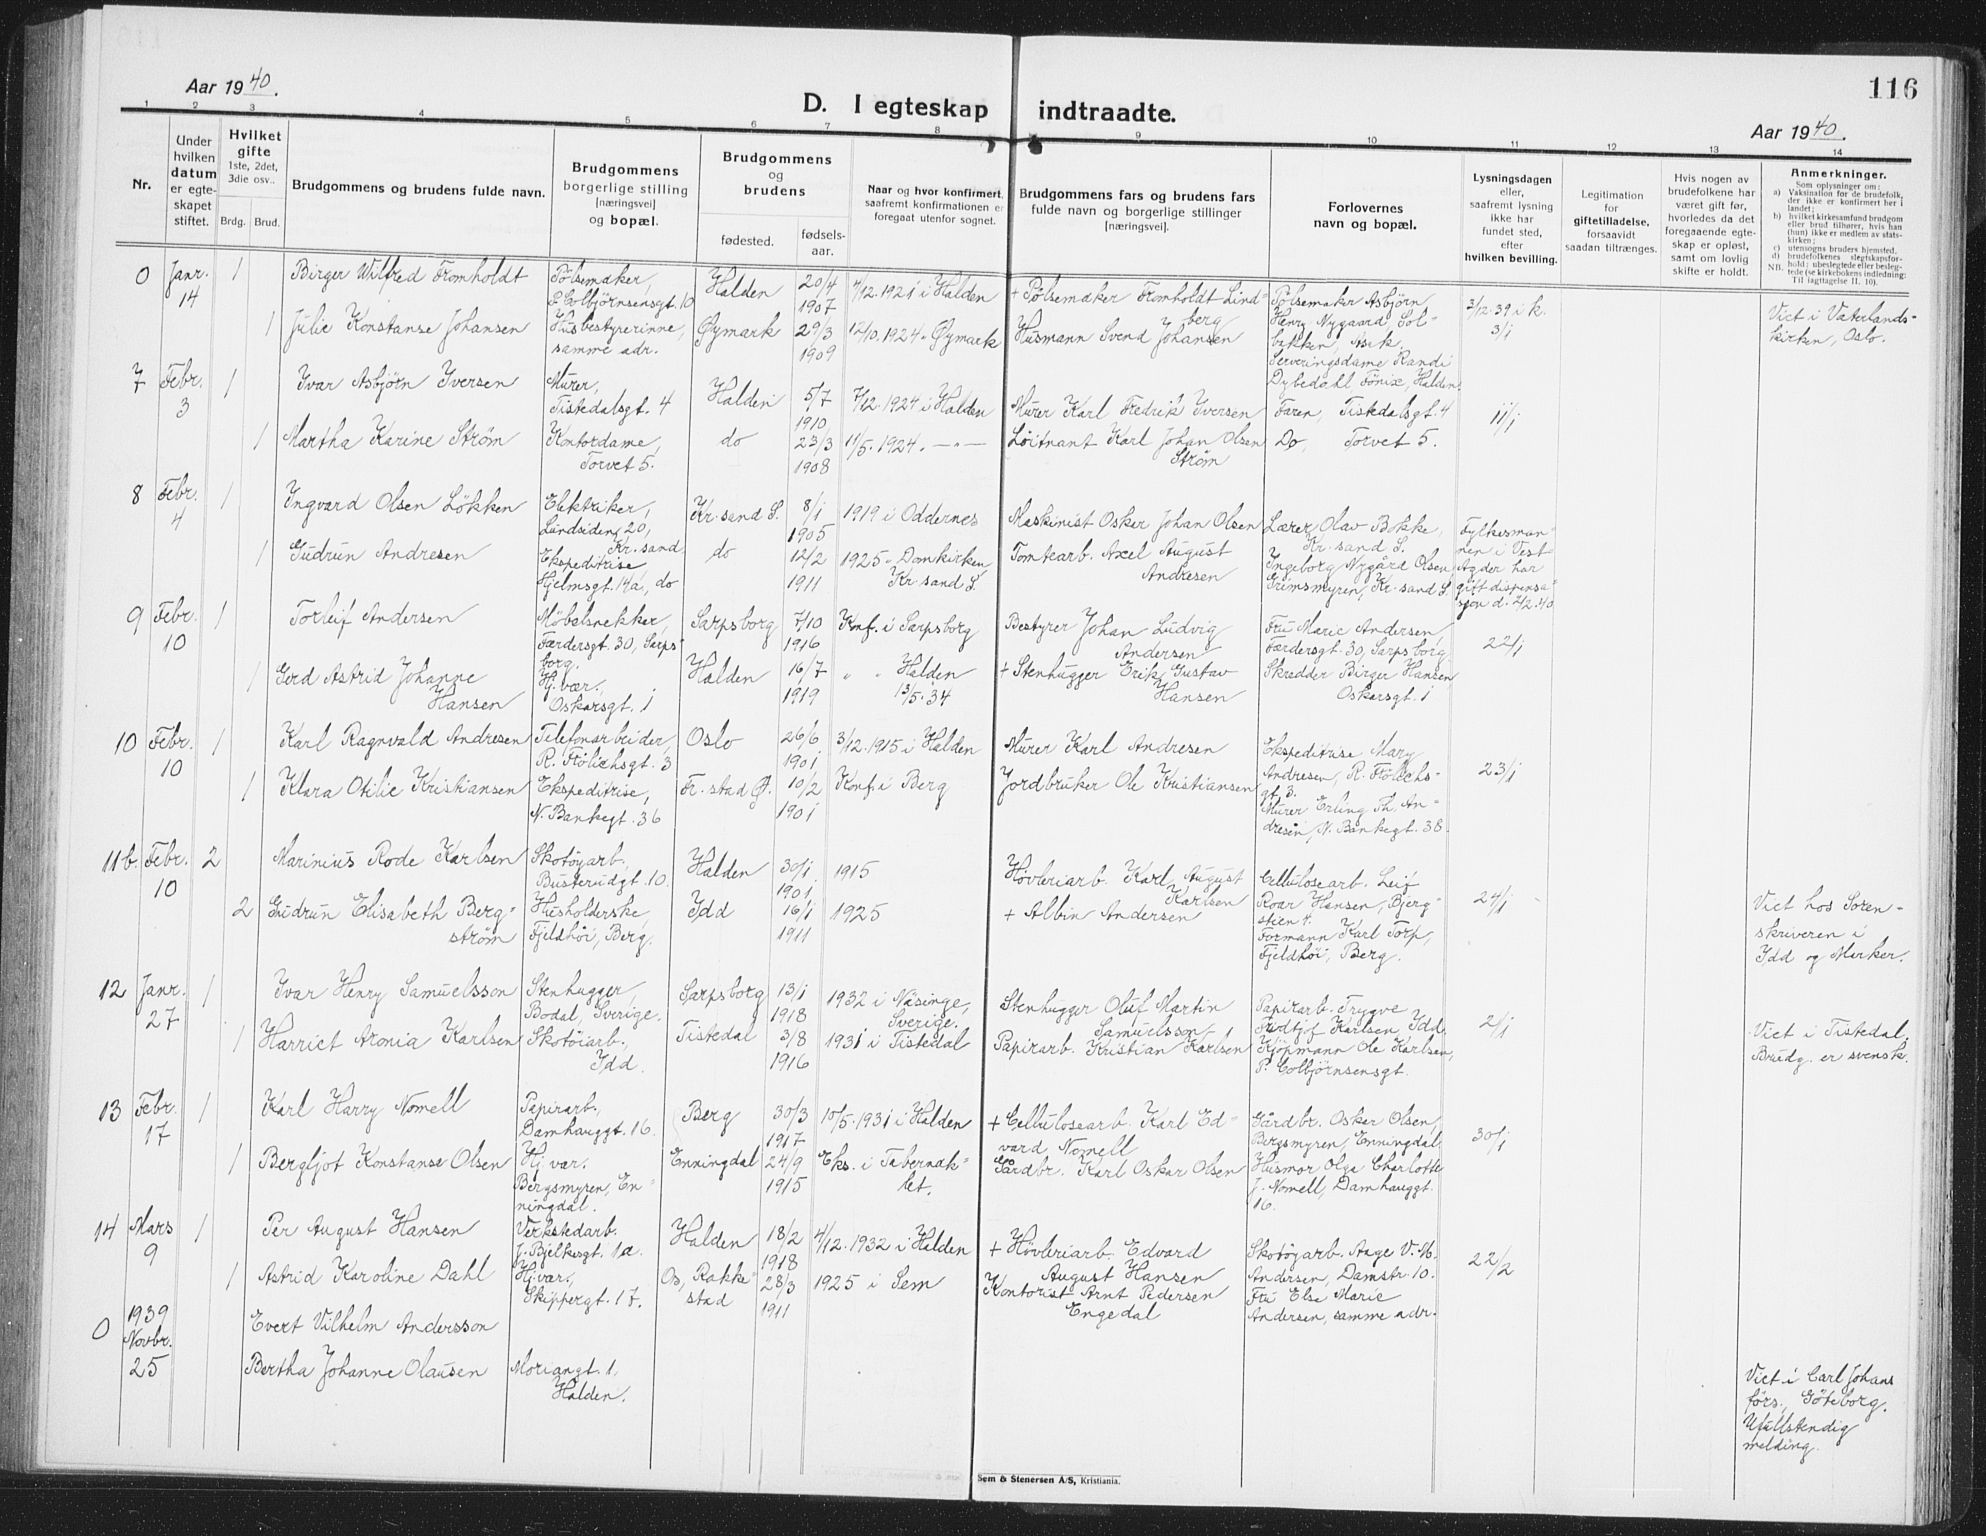 116
Aar 1940.
D. I egteskap indtraadte.
Aar 1940.
1 2 3 4 5 6 7 8 9 10 11 12 13 14
Nr.
Under
hvilken
datum
er egte-
skapet
stiftet.
Hvilket
gifte
1ste, 2det,
3die osv..
Brdg. Brud.
Brudgommens og brudens fulde navn.
Brudgommens
borgerlige stilling
[næringsvei]
og bopæl.
Brudgommens
og
brudens
fødested.
fødsels-
aar.
Naar og hvor konfirmert,
saafremt konfirmationen er
foregaat utenfor sognet.
Brudgommens fars og brudens fars
fulde navn og borgerlige stillinger
[næringsvei].
Forlovernes
navn og bopæl.
Lysningsdagen
eller,
saafremt lysning
ikke har
fundet sted,
efter
hvilken bevilling.
Legitimation
for
giftetilladelse,
forsaavidt
saadan tiltrænges.
Hvis nogen av
brudefolkene har
været gift før,
hvorledes da det
foregaaende egte-
skap er opløst,
samt om lovlig
skifte er holdt.
Anmerkninger.
Som oplysninger om:
a) Vaksination for de brudefolk,
der ikke er konfirmert her i
landet;
b) hvilket kirkesamfund brudgom
eller brud tilhører, hvis han
(hun) ikke er medlem av stats-
kirken;
c) utensogns bruders hjemsted.
d) brudefolkenes slegtskapsfor-
hold: ubeslegtede eller besleg-
NB. tede (se kirkebokens indledning:
Til iagttagelse II. 10).
0 Janr. 14 1 Birger Wilfred Fromholdt
Pølsemaker,
P. Colbjørnsensgt. 10
Halden 20/4 1907
4/12. 1921 i Halden
+ Pølsemaker Fromholdt Lind=
berg
Pølsemaker Asbjørn
Henry Nygaard, Sol-
bakken, Asak.
3/12. 39 i k.
3/1
Viet i Vaterlands-
kirken, Oslo.
1 Julie Konstanse Johansen
Husbestyrerinne,
samme adr.
Øymark 29/3 1909
12/10. 1924 " Øymark
Husmann Svend Johansen
Serveringsdame Randi
Dybedahl Fönix, Halden.
7 Febr. 3 1 Ivar Asbjørn Iversen
Murer,
Tistedalsgt. 4
Halden 5/7 1910
7/12. 1924 i Halden
Murer Karl Fredrik Iversen
Faren, Tistedalsgt. 4
11/1
1 Martha Karine Strøm
Kontordame,
Torvet 5.
do 23/3 1908
11/5. 1924. — " —
Løitnant Karl Johan Olsen
Strøm
Do, Torvet 5.
8 Febr. 4 1 Ingvard Olsen Løkken
Elektriker,
Lundsiden 20,
Kr.sand
Kr.sand S. 8/1 1905
1919 i Oddernes
Maskinist Oskar Johan Olsen
Lærer Olav Bokke,
Kr.sand S.
Fylkesman-
nen i Vest
Agder har
gitt dispensa-
sjon d. 2/2.40
1 Gudrun Andresen
Ekspeditrise
Hjelmsgt. 14a, do
do 12/2 1911
1925 " Domkirken
Kr.sand S.
Tomtearb. Axel August
Andresen
Ingeborg Nygård Olsen,
Grimsmyren, Kr.sand S.
9 Febr. 10 1 Torleif Andersen
Møbelsnekker,
Færdersgt. 30, Sarps-
borg.
Sarpsborg 7/10 1916
Konf. i Sarpsborg
Bestyrer Johan Ludvig
Andersen
Fru Marie Andersen,
Færdersgt. 30, Sarpsborg.
22/1
1 Gerd Astrid Johanne
Hansen
Hj.vær.,
Oskarsgt. 1
Halden 16/7 1919
" " Halden
13/5. 34
+ Stenhugger Erik Gustav
Hansen
Skredder Birger Hansen
Oskarsgt. 1
10 Febr. 10 1 Karl Ragnvald Andresen
Telefonarbeider,
R. Fölichsgt. 3
Oslo 26/6 1901
3/12. 1915 i Halden
Murer Karl Andresen
Ekspeditrise Mary
Andresen, R. Fölichs-
gt. 3.
23/1
1 Klara Otilie Kristiansen
Ekspeditrise,
N. Bankegt. 36
Fr.stad Ø. 10/2 1901
Konf. i Berg
Jordbruker Ole Kristiansen
Murer Erling Th. An-
dresen, N. Bankegt. 38.
11b. Febr. 10 2 Marinius Rode Karlsen
Skotøyarb.,
Busterudgt. 10.
Halden 30/1 1901
1915
Høvleriarb. Karl August
Karlsen
Cellulosearb. Leif
Roar Hansen, Bjerg-
stien 4.
24/1
Viet hos Soren-
skriveren i
Idd og Marker.
2 Gudrun Elisabeth Berg-
strøm
Husholderske,
Fjeldhøi, Berg.
Idd 16/1 1911
1925
+ Albin Andersen
Formann Karl Torp,
Fjeldhøi, Berg.
12 Janr. 27 1 Ivar Henry Samuelsson
Stenhugger,
Bodal, Sverige.
Sarpsborg 13/1 1918
1932 i Näsinge,
Sverige.
Stenhugger Oluf Martin
Samuelsson
Papirarb. Trygve
Fridtjof Karlsen, Idd.
2/1
Viet i Tistedal.
Brudg. er svensk.
1 Harriet Aronia Karlsen
Skotøiarb.,
Idd.
Tistedal 3/8 1916
1931 i Tistedal
Papirarb. Kristian Karlsen
Kjøpmann Ole Karlsen,
P. Colbjørnsensgt.
13 Febr. 17 1 Karl Harry Nomell
Papirarb.,
Damhauggt. 16.
Berg 30/3 1917
10/5. 1931 i Halden
+ Cellulosearb. Karl Ed-
vard Nomell
Gårdbr. Oskar Olsen,
Bergsmyren, Enningdal,
30/1
1 Bergljot Konstanse Olsen
Hj.vær.
Bergsmyren, En-
ningdal.
Enningdal 24/9 1915
Eks. i Tabernak-
let.
Gårdbr. Karl Oskar Olsen
Husmor Olga Charlotte
J. Nomell, Damhauggt.
16.
14 Mars 9 1 Per August Hansen
Verkstedarb.
J. Bjelkesgt. 1a.
Halden 18/2 1918
4/12. 1932 i Halden
+ Høvleriarb. Edvard
August Hansen
Skotøyarb. Aage V. M.
Andersen, Damstr. 10.
22/2
1 Astrid Karoline Dahl
Hj.vær.,
Skippergt. 17.
Os, Rakke-
stad 28/3 1911
1925 i Sem
Kontorist Arnt Pedersen
Engedal
Fru Else Marie
Andersen, samme adr.
0 1939 Novbr. 25
Evert Vilhelm Andersson
Bertha Johanne Olausen
Moriangt. 1,
Halden.
Viet i Carl Johans
förs., Göteborg.
Ufullstendig
melding.
Sem & Stenersen A/S, Kristiania.